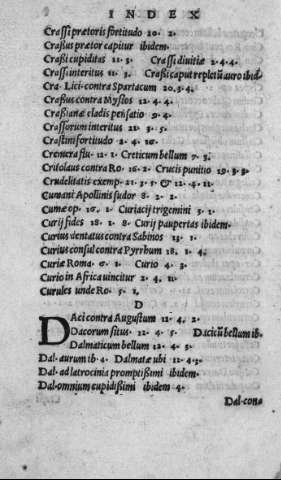 INDEX
Crassi prætoris fortitudo 20. 2.
Crassus prætor capitur ibidem.
Crassi cupiditas 11. 3. Crassi divitiæ 2. 4. 4.
Crassi interitus 11. 3. Crassi caput repletũ auro ibid.
Cra. Lici. contra Spartacum 20. 3. 4.
Crassus contra Mysios 12. 4. 4.
Crassianæ cladis pensatio 9. 4.
Crassorum interitus 21. 3. 5.
Crastini fortitudo 2. 4. 10.
Cremera flu. 12. 1. Creticum bellum 7. 3.
Critolaus contra Ro. 16. 2. Crucis punitio 19. 3. 3
Crudelitatis exemp. 21. 3. 5 & 12. 4. 11.
Cumani Apollinis sudor 8. 2. 2.
Cumæ op. 16. 1. Curiacij trigemini 3. 1.
Curij fides 18. 1. 8. Curij paupertas ibidem.
Curius dentatus contra Sabinos 15. 1.
Curius consul contra Pyrrhum 18. 1. 4.
Curiæ Roma. 6. 1. Curio 4. 3.
Curio in Africa uincitur 2. 4. 11.
Curules unde Ro. 5. 1.
D
Daci contra Augustum 12. 4. 2.
Dacorum situs. 12. 4. 5. Dacicũ bellum ib.
Dalmaticum bellum 12. 4. 5.
Dal. aurum ib. 4. Dalmatæ ubi 12. 4. 3.
Dal. ad latrocinia promptissimi ibidem.
Dal. omnium cupidissimi ibidem 4.
Dal. cona